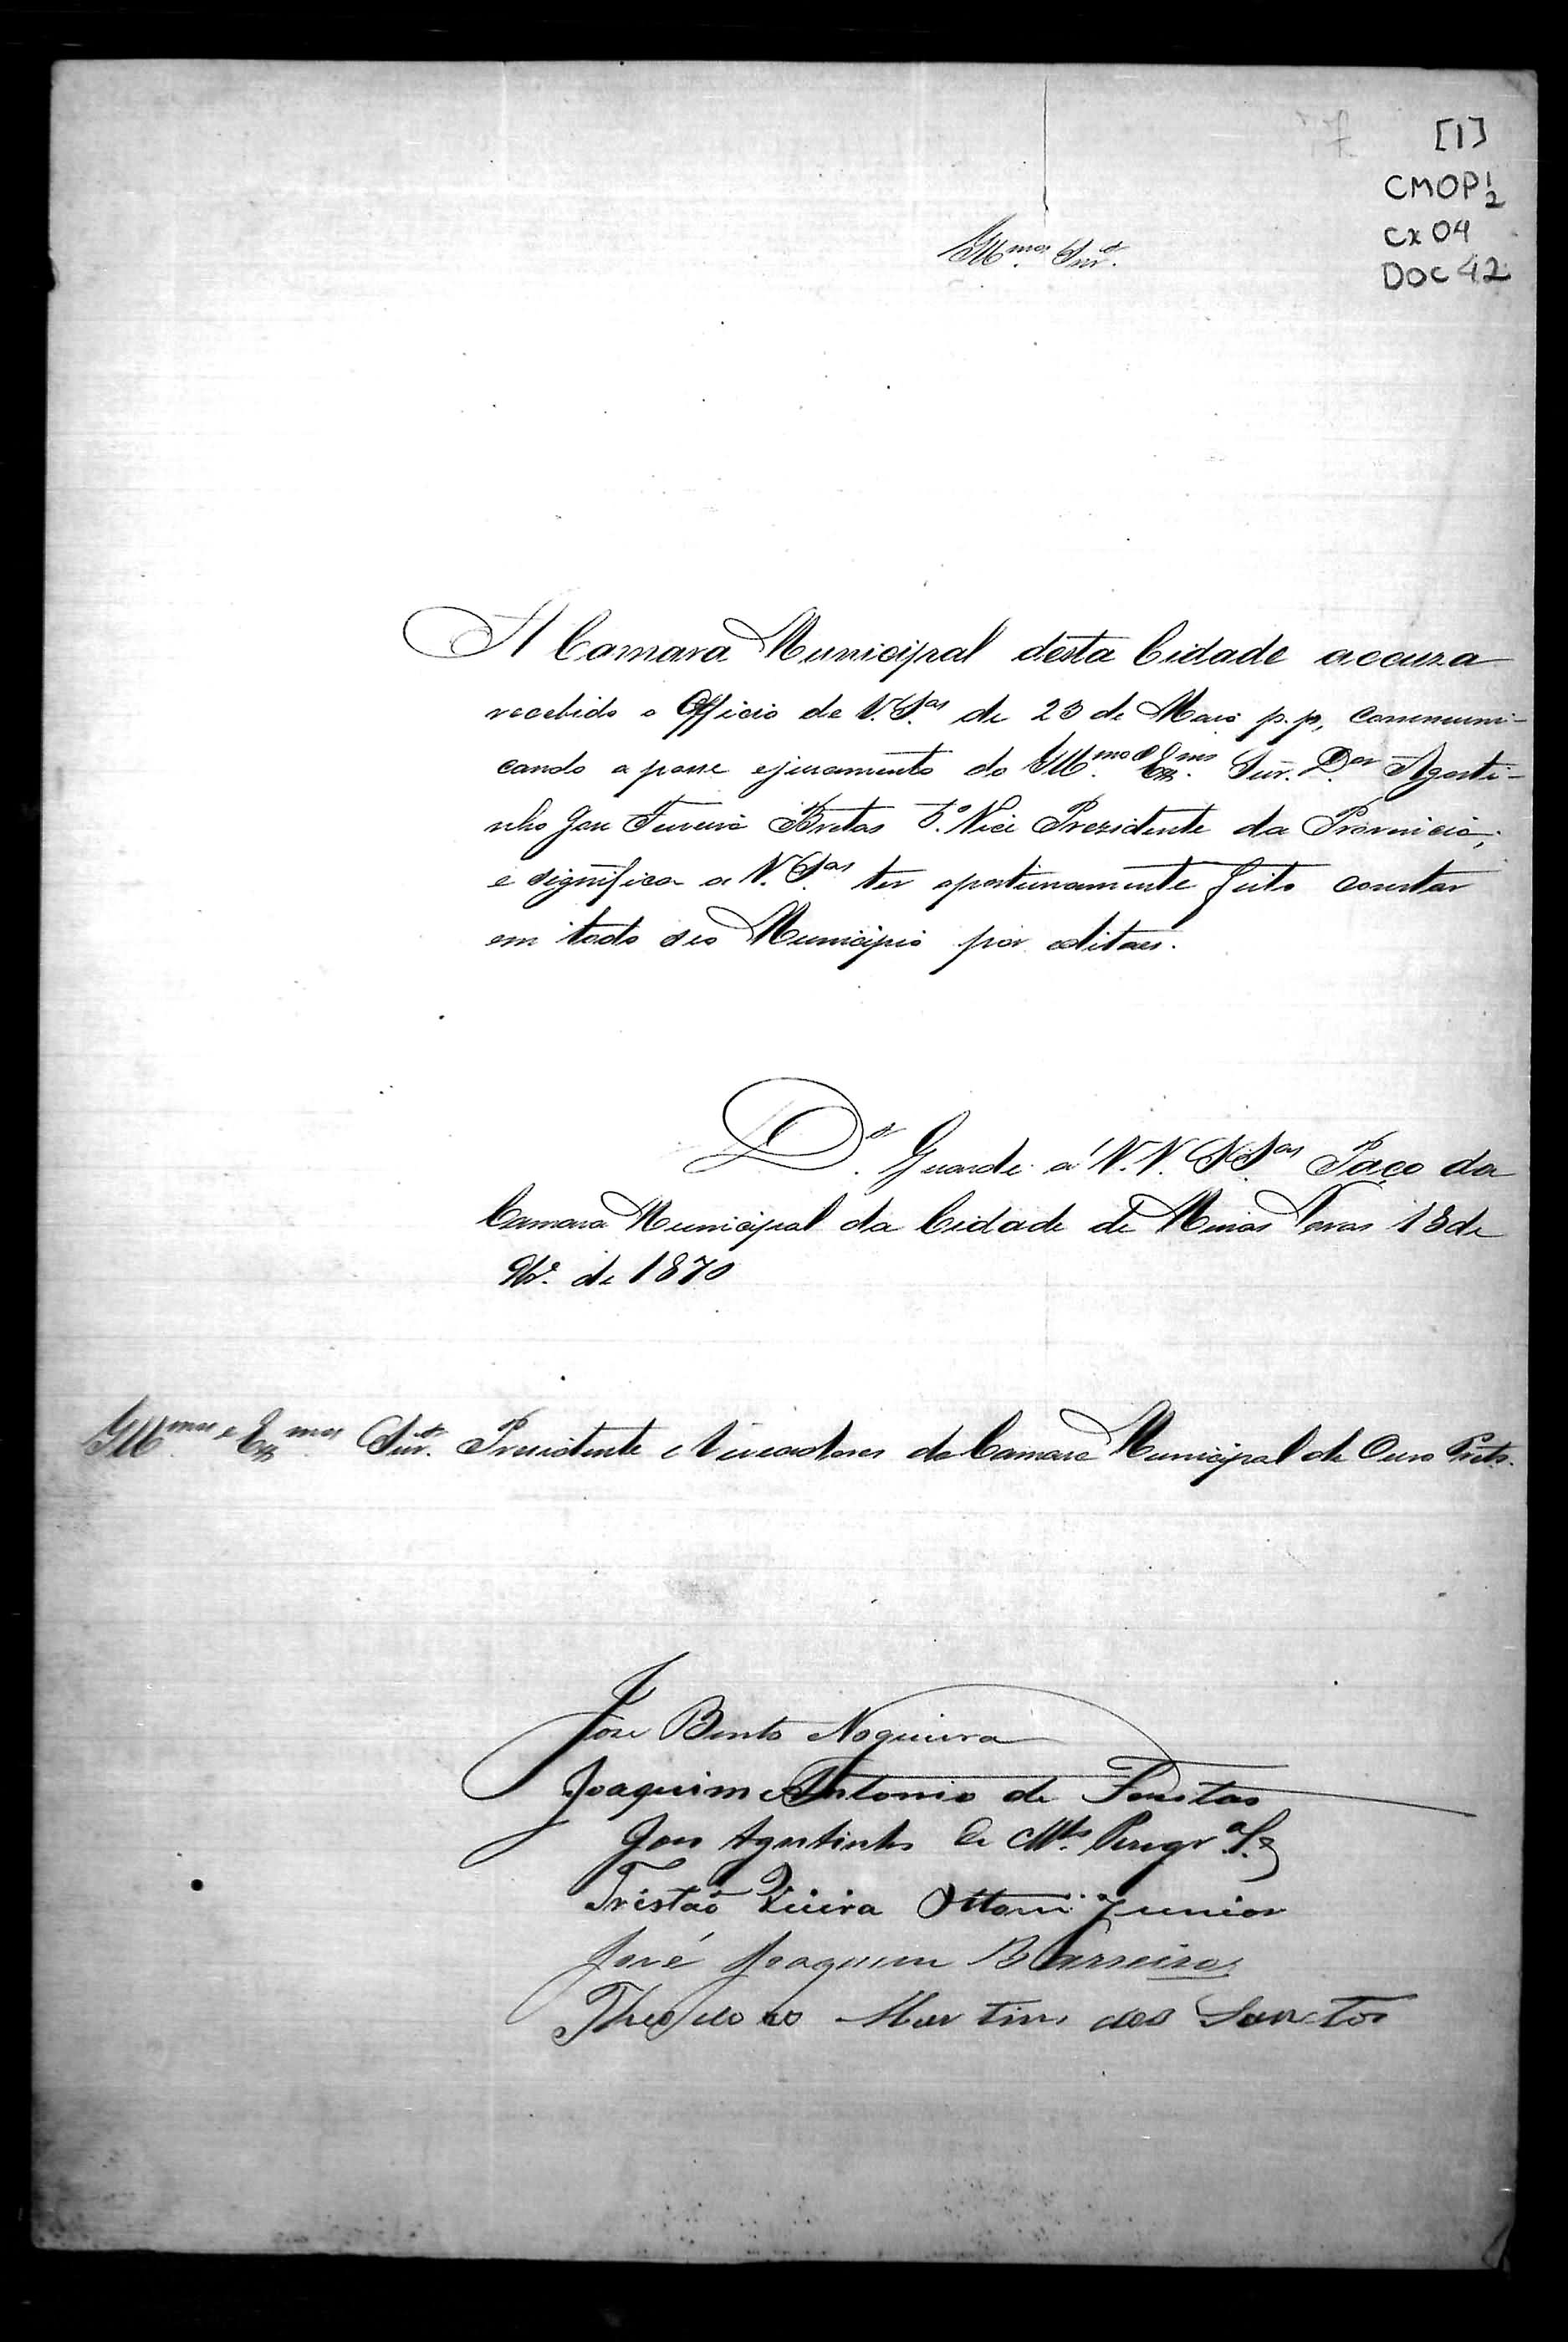 [1]
CMOP 1/2
CX 04
DOC 42
Illmos. Snrs.
A Camara Municipal desta Cidade accuza
recebido o Officio de V. Sas. de 23 de Maio p.p., communi-
cando a posse e juramento do Illmo. e Exmo. Snr. Dor. Agosti-
nho José Ferreira Bretas 5º. Vice Prezidente da Provincia;
e significa a V. Sas. ter opportunamente feito constar
em todo seo Municipio por editaes.
Ds. Guarde a V.V. S.Sas. Paço da
Camara Municipal da Cidade de Minas Novas 18 de
de 1870
Illmos. e Exmos. Snrs. Presidente e Vereadores da Camara Municipal de Ouro Preto.
José Bento Nogueira
Joaquim Antonio de Freitas
José Agostinho de
Tristão Vieira Ottoni Junior
José Joaquim Barreiros
Theodoro Martins dos Santos